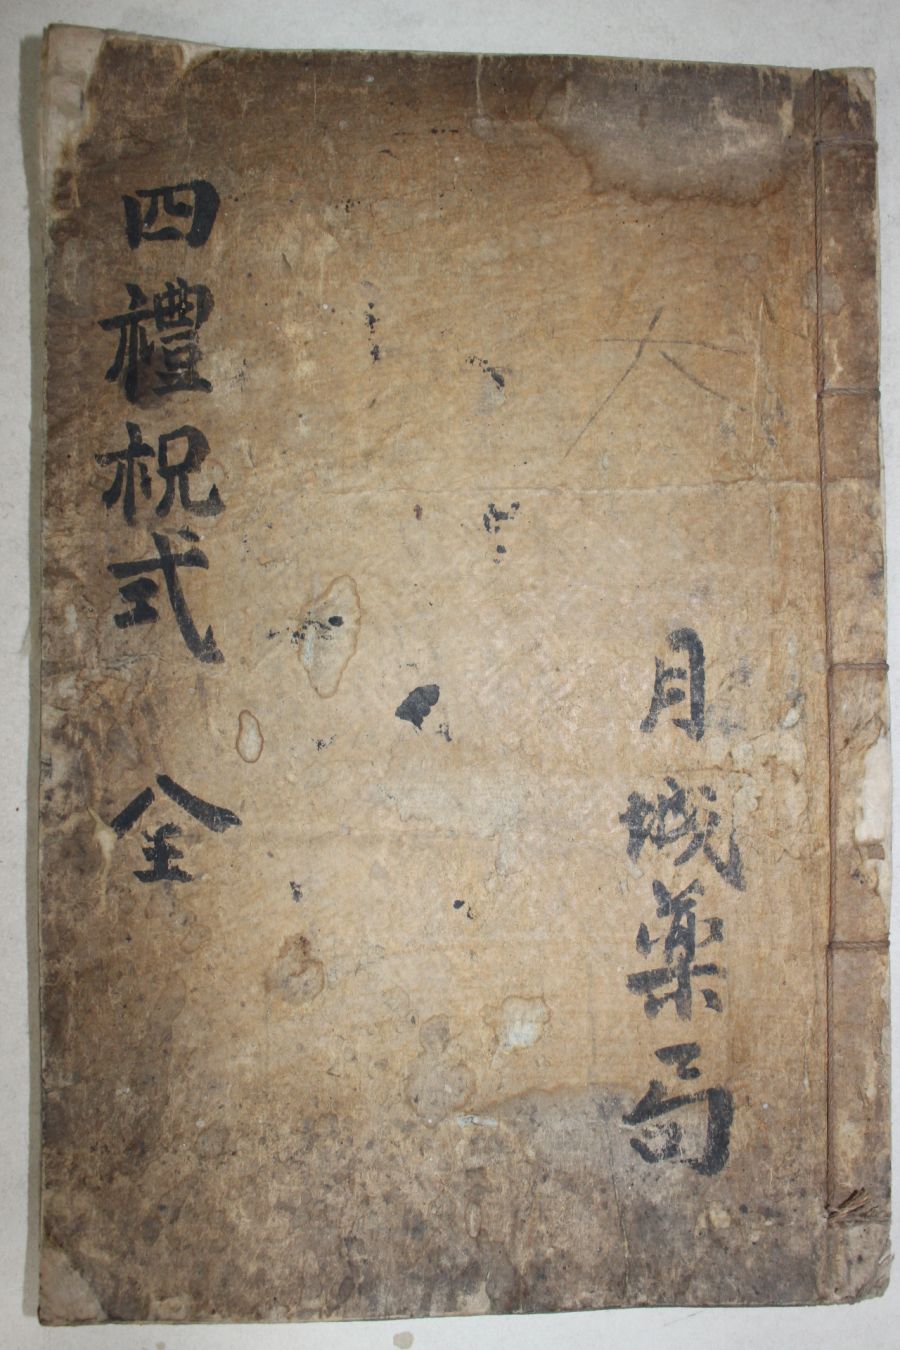 月城藥局
四禮祝式 全